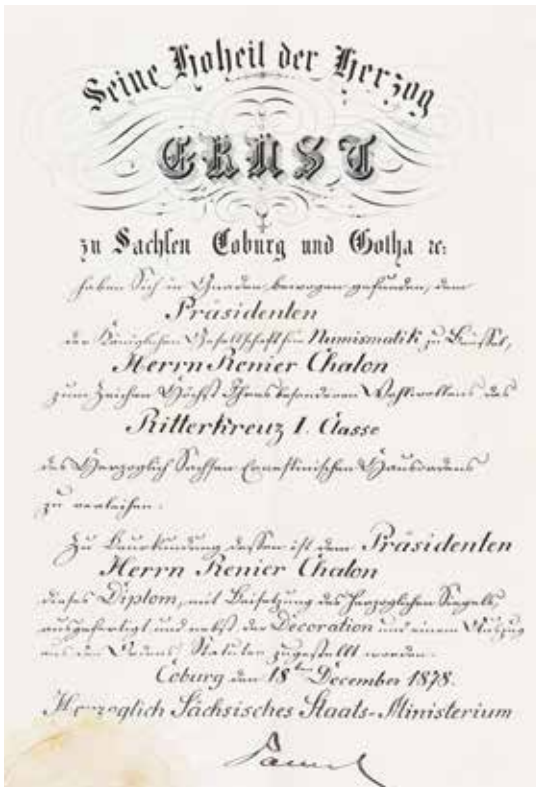 Seine Hoheit der Herzog
ERNST
zu Sachsen Coburg und Gotha ꝛc:
haben Sich in Gnaden bewogen gefunden, dem
Präsidenten
der Königlichen Gesellschaft für Numismatik zu Brüssel,
Herrn Renier Chalon
zum Zeichen Höchst Ihres besonderen Wohlwollens das
Ritterkreuz I. Classe
des Herzoglich Sachsen Ernestinischen Hausordens
zu verleihen.
Zu Beurkundung dessen ist dem Präsidenten
Herrn Renier Chalon
dieses Diplom, mit Beisetzung des Herzoglichen Siegels,
ausgefertigt und nebst der Decoration und einem Auszug
aus den Ordens Statuten zugestellt worden.
Coburg den 18ten December 1878.
Herzoglich Sächsisches Staats-Ministerium